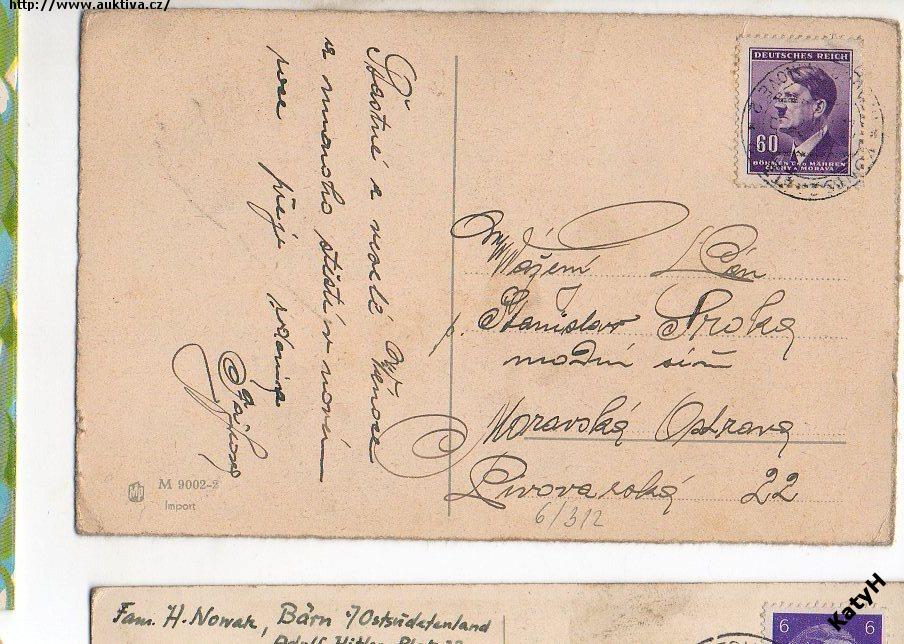 http://www.auktiva.cz/
Šťastné a veselé Vánoce
a mnoho štěstí v novém
roce přeje
M 9002-2
Import
DEUTSCHES REICH
60
BÖHMEN UND MÄHREN
ČECHY A MORAVA
Vážený Pán
Stanislav
modní síň
Moravská Ostrava
Pivovarská 22
6/312
Fam. H. Nowak, Bärn /Ostsudetenland
Adolf Hitler-Platz
6 6
KatyH